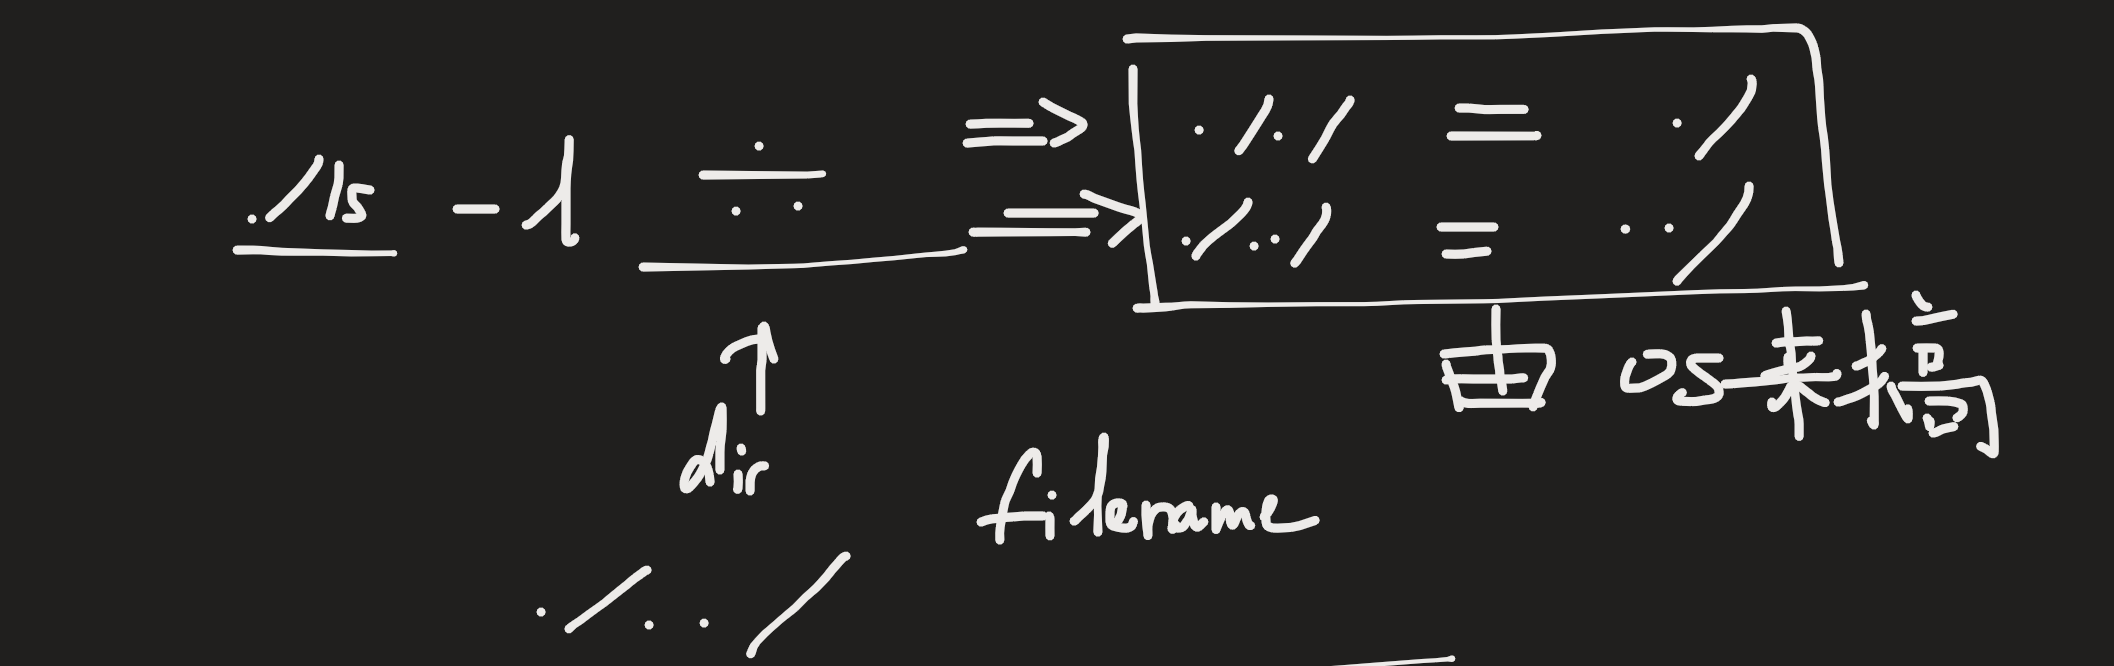 ./ls -l . ⇒ ././ = ./
.. ⇒ ./../ = ../
由 OS 来搞
dir
filename
./../